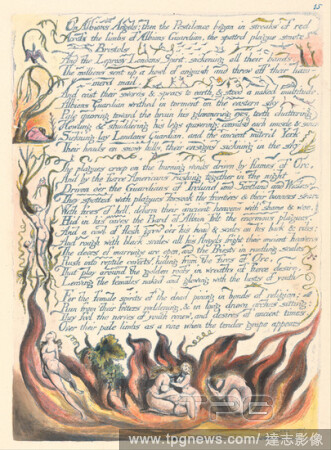 15
On Albions Angels: then the Pestilence began in streaks of red
Across the limbs of Albions Guardian, the spotted plague smote
Bristols
And the Leprous Londons Spirit, sickening all their bands:
The millions sent up a howl of anguish and threw off their ham-
-merd mail,
And cast their swords & spears to earth, & stood a naked multitude.
Albions Guardian writhed in torment on the eastern sky
Pale quivring toward the brain his glimmering eyes, teeth chattering
Howling & shuddering his legs quivering; convuls'd each muscle & sinew
Sick'ning lay Londons Guardian, and the ancient miter'd York
Their heads on snowy hills, their ensigns sick'ning in the sky
The plagues creep on the burning winds driven by flames of Orc,
And by the fierce Americans rushing together in the night
Driven o'er the Guardians of Ireland and Scotland and Wales
They spotted with plagues forsook the frontiers & their banners seard
With fires of hell, deform their ancient heavens with shame & woe.
Hid in his caves the Bard of Albion felt the enormous plagues.
And a cowl of flesh grew o'er his head & scales on his back & ribs;
And rough with black scales all his Angels fright their ancient heavens
The doors of marriage are open, and the Priests in rustling scales
Rush into reptile coverts, hiding from the fires of Orc,
That play around the golden roofs in wreaths of fierce desire,
Leaving the females naked and glowing with the lusts of youth
For the female spirits of the dead pining in bonds of religion;
Run from their fetters reddening, & in long drawn arches sitting:
They feel the nerves of youth renew, and desires of ancient times,
Over their pale limbs as a vine when the tender grape appears
TPG
www.tpgnews.com / 達志影像